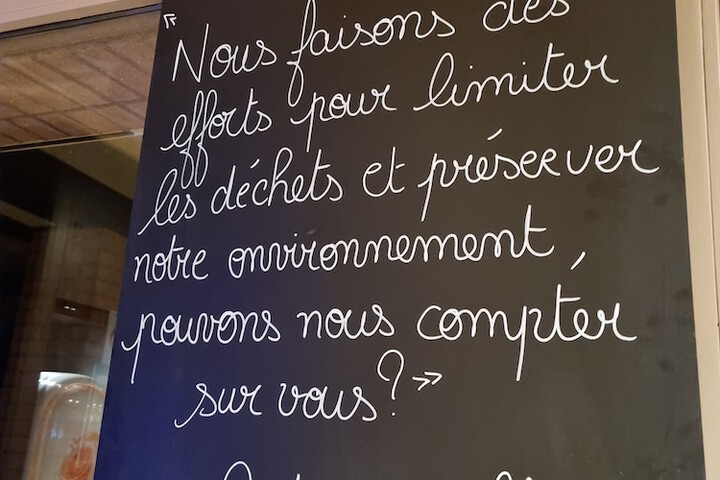 « Nous faisons des
efforts pour limiter
les déchets et préserver
notre environnement,
pouvons nous compter
sur vous ? »